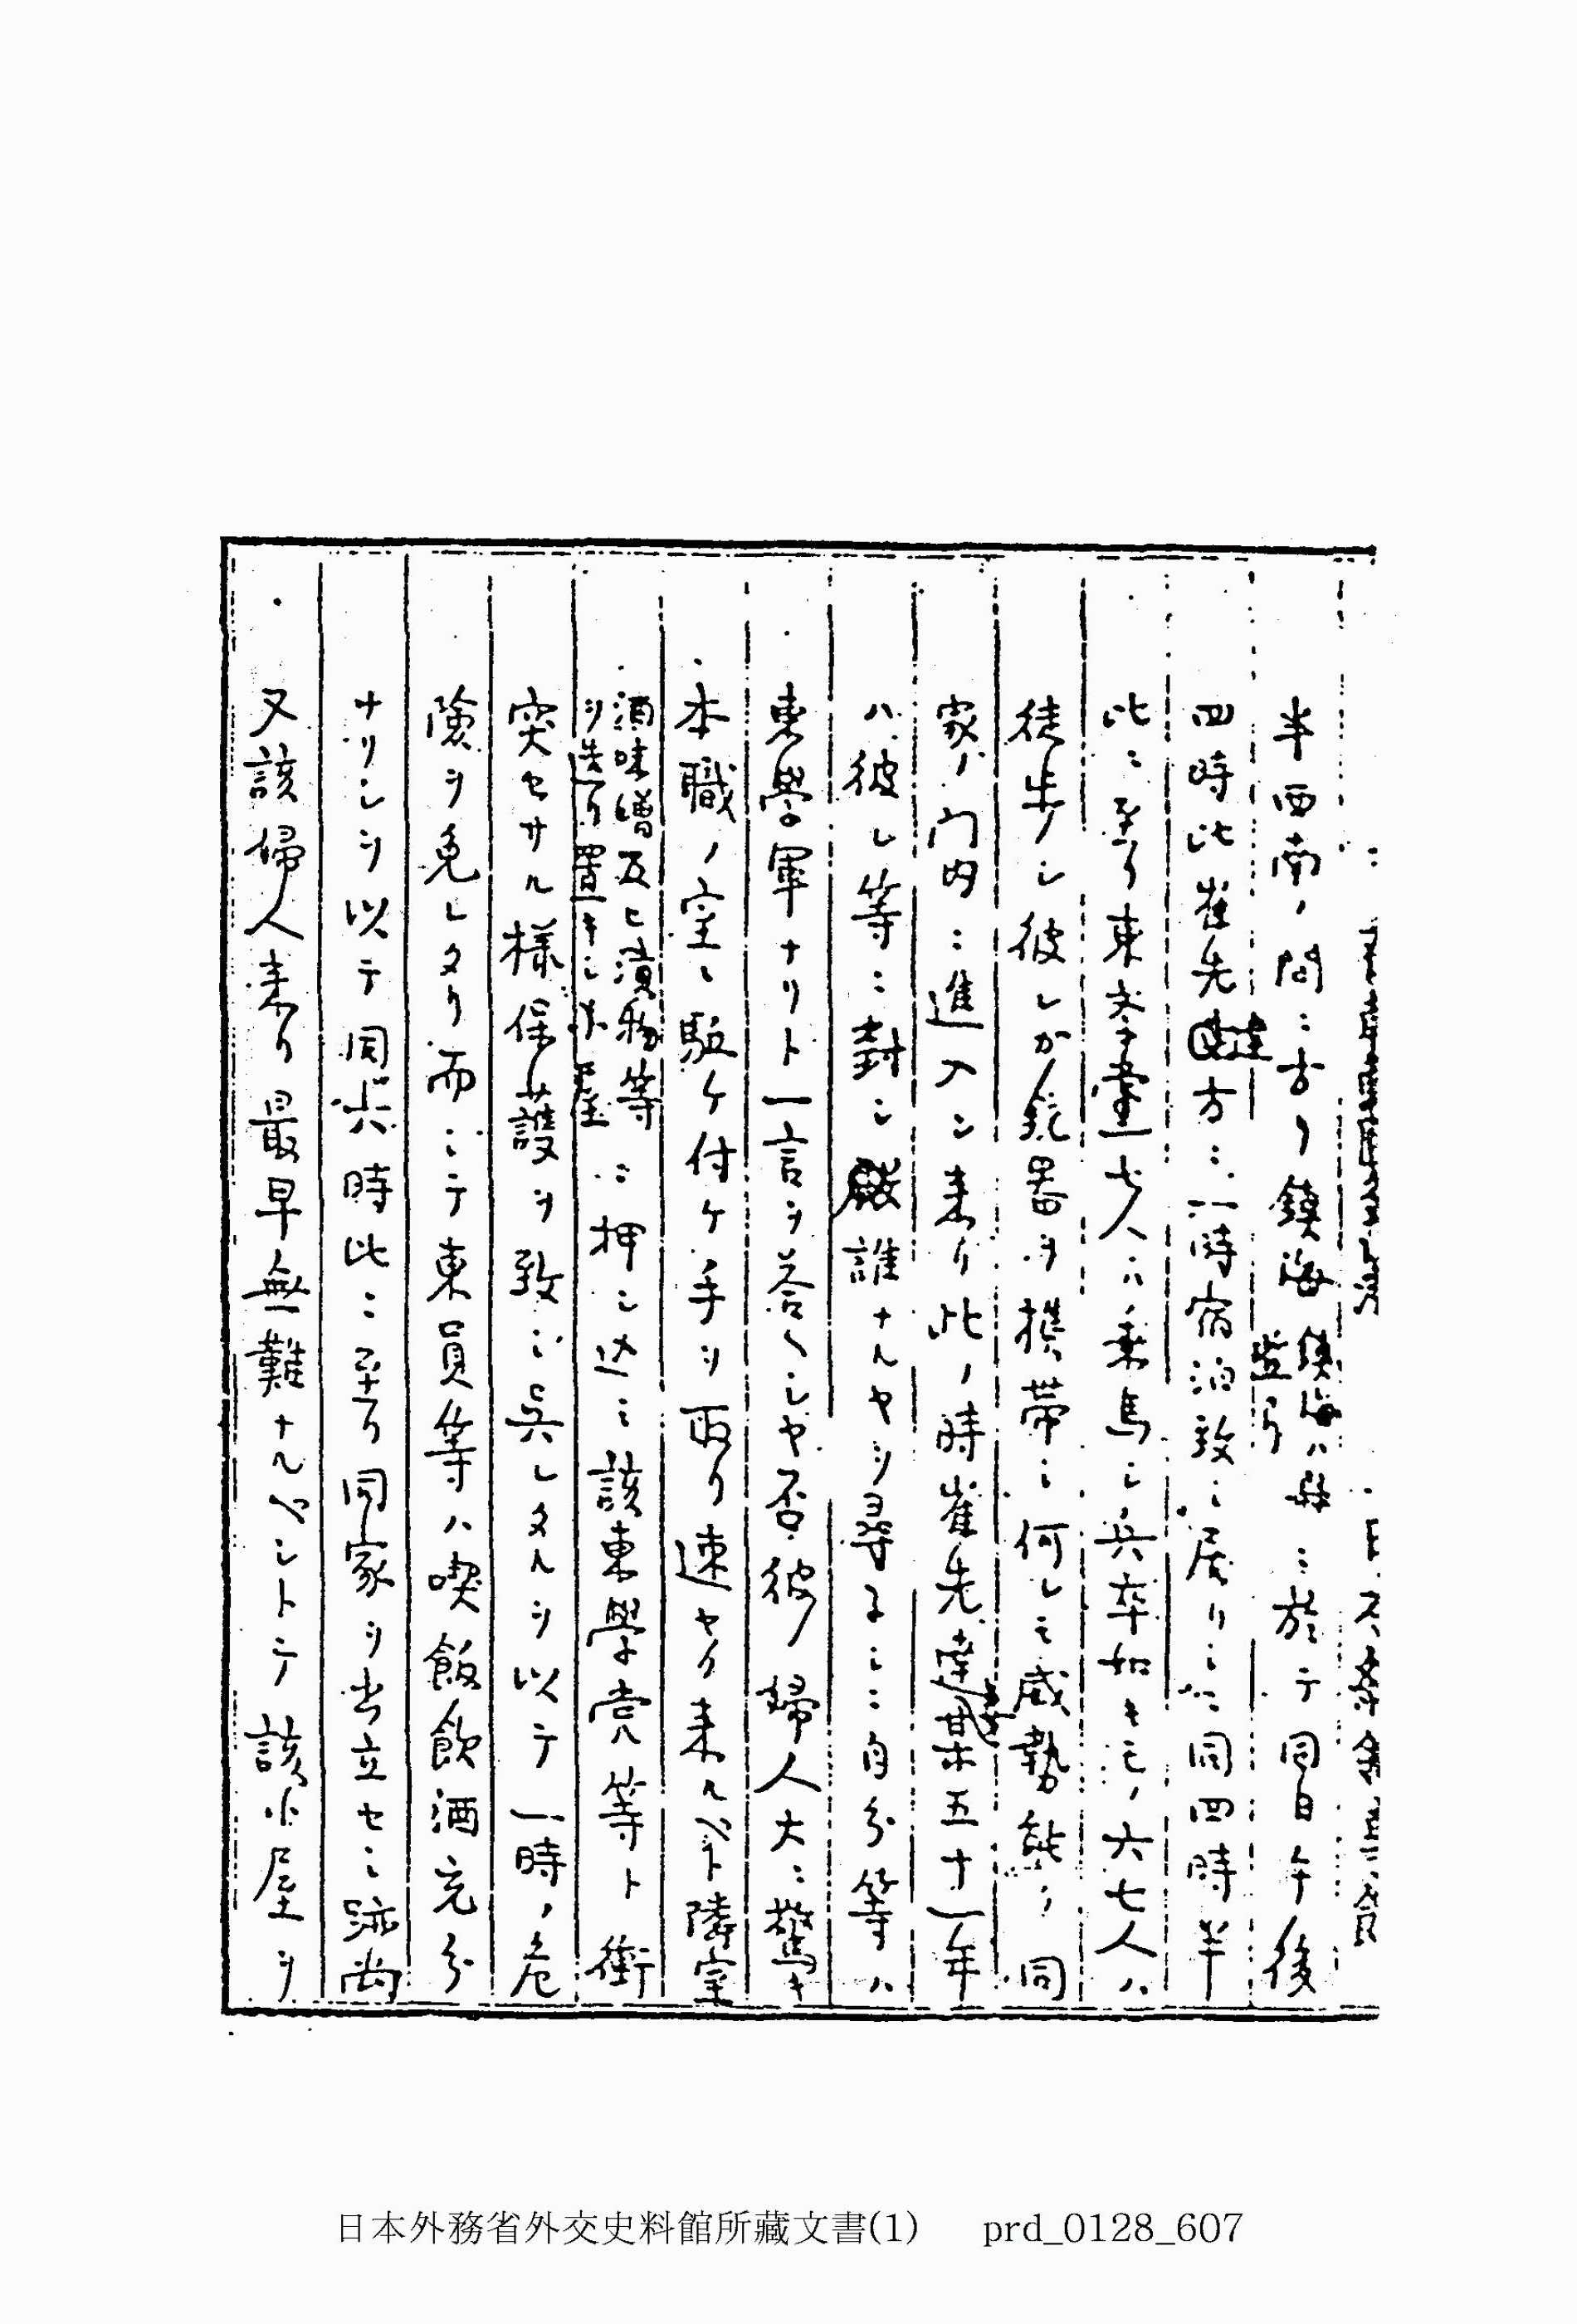 半西南ノ間ニ古リ鎮海鎮海ハ豊ニ於テ同日午後
四時比崔先達方ニ一時宿泊致シ居リシニ同四時半
此ニ至リ東学黨一七人ハ乗馬シ兵卒如キモノ六七人ハ
徒歩シ彼レカ銃器ヲ携帯シ何レモ威勢能ク同
家ノ門内ニ進入シ来リ此ノ時崔先達某五十一年
ハ彼レ等ニ対シ誰ナルヤヲ尋子シニ自分等ハ
東學軍ナリト一言ヲ答ヘシヤ否彼ノ婦人大ニ驚キ
本職ノ室ニ駈ケ付ケ手ヲ取リ速ヤク来ルベト隣室
酒味噌瓦ヒ漬物等
ヲ造リ置キシ小屋
ニ押シ込ミ該東學党等ト衝
突セサル様保護ヲ致シ呉レタルヲ以テ一時ノ危
険ヲ免レタリ而シテ東員等ハ喫飯飲酒充分
ナリシヲ以テ同六時比ニ至リ同家ヲ出立セシ跡尚
又該婦人来リ最早無難ナルベシトテ該小屋ヲ
日本外務省外交史料館所藏文書(1) prd_0128_607